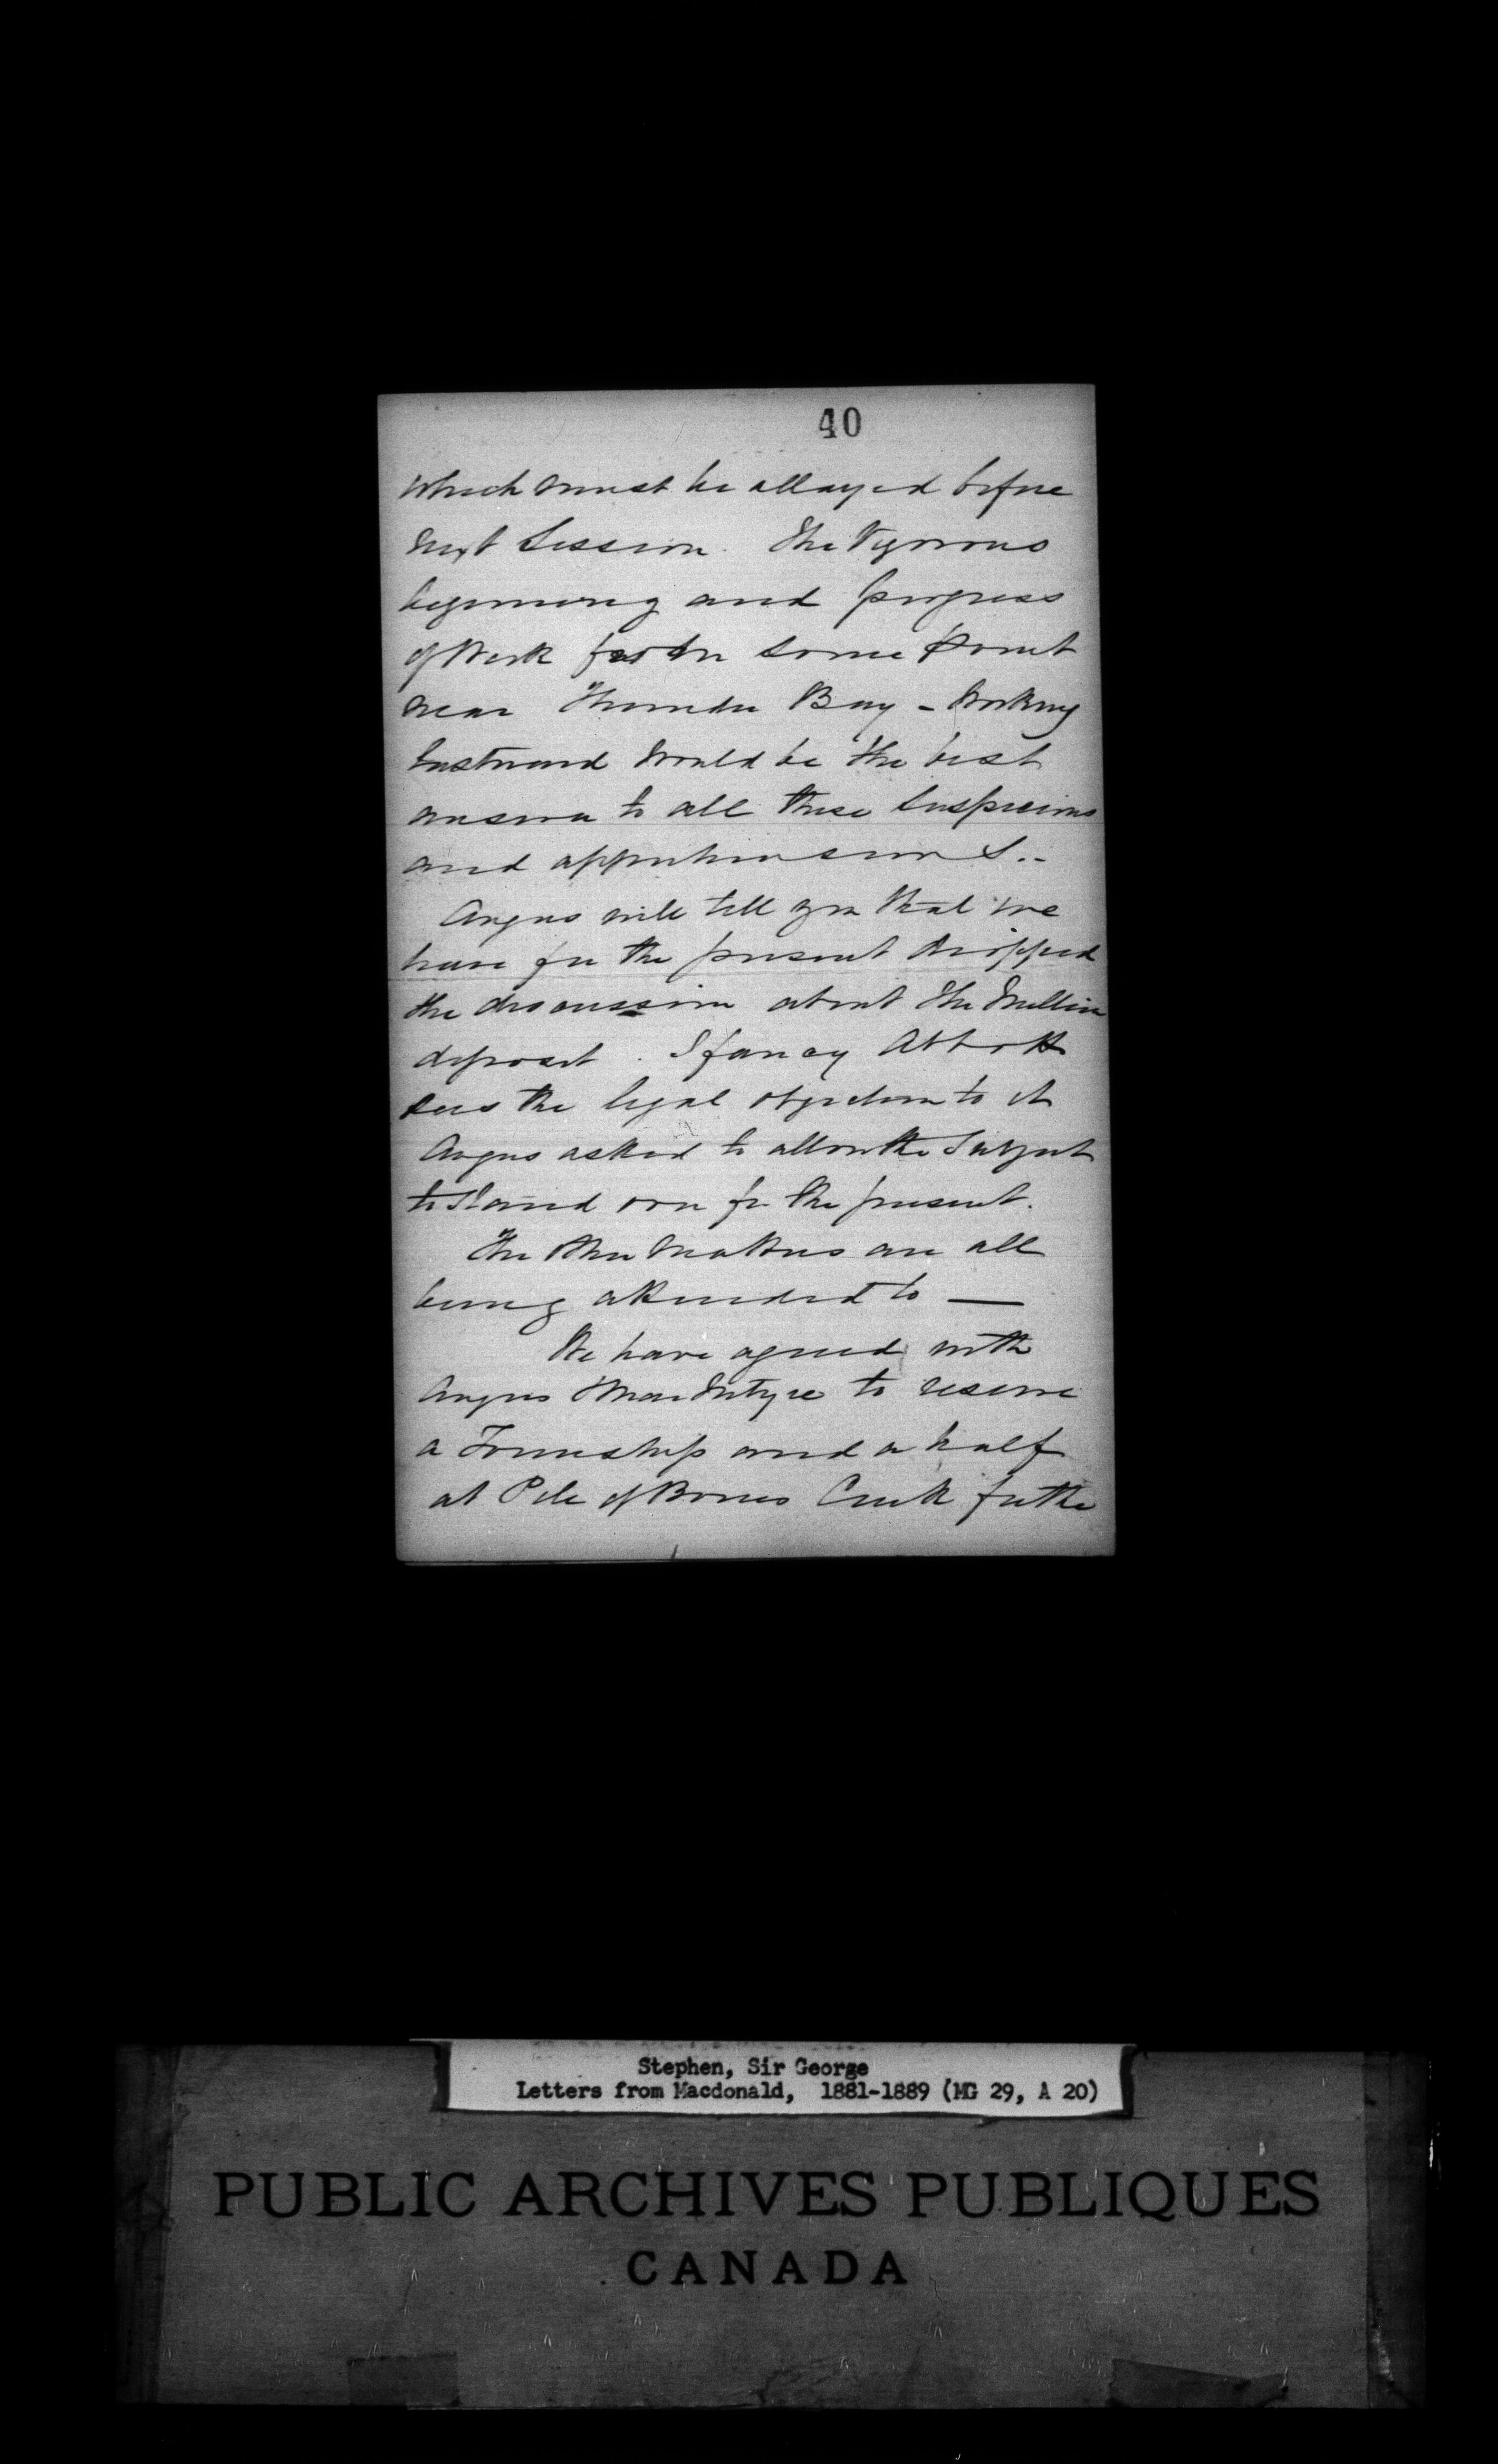 40
which must be allayed before
next Session. The Vigorous
beginning and progress
of Work from some point
near Thunder Bay - Working
Eastward would be the best
answer to all these suspicions
and apprehensions..
Angus will tell you that we
have for the present dropped
the discussion about the Million
deposit. I fancy Abbott
sees the legal objection to it
Angus asked to allow the Subject
to stand over for the present.
The other matters are all
being attended to —
We have agreed with
Angus & MacIntyre to reserve
a Township and a half
at Pile of Bones Creek for the
Stephen, Sir George
Letters from Macdonald, 1881-1889 (MG 29, A 20)
PUBLIC ARCHIVES PUBLIQUES
CANADA